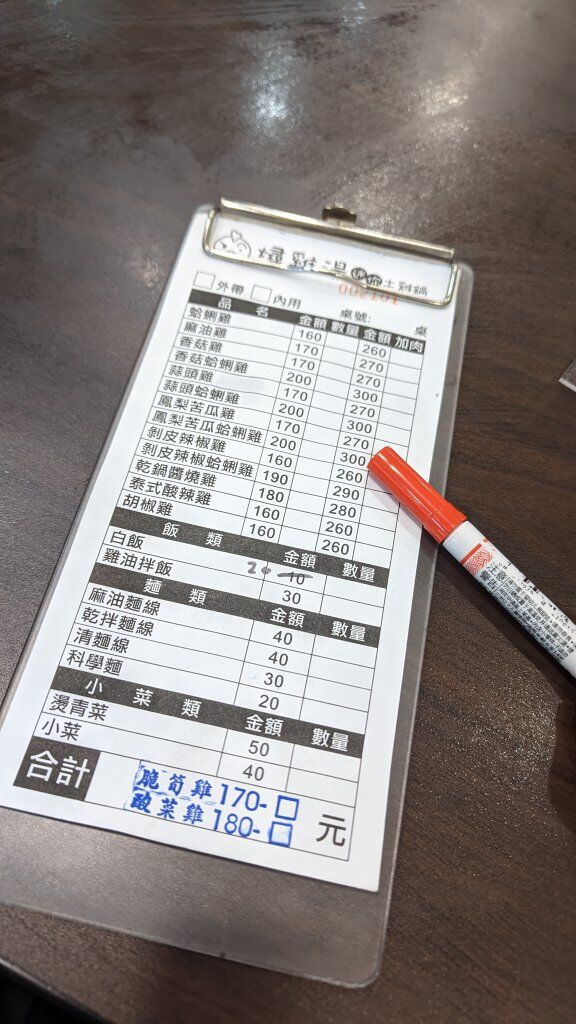 雞湯 迷你土雞鍋
外帶 內用 桌號: 桌
品名 金額 數量 金額 加肉
蛤蜊雞 160 260
麻油雞 170 270
香菇雞 170 270
香菇蛤蜊雞 200 300
蒜頭雞 170 270
蒜頭蛤蜊雞 200 300
鳳梨苦瓜雞 170 270
鳳梨苦瓜蛤蜊雞 200 300
剝皮辣椒雞 160 260
剝皮辣椒蛤蜊雞 190 290
乾鍋醬燒雞 180 280
泰式酸辣雞 160 260
胡椒雞 160 260
飯類 金額 數量
白飯 20 10
雞油拌飯 30
麵類 金額 數量
麻油麵線 40
乾拌麵線 40
清麵線 30
科學麵 20
小菜類 金額 數量
燙青菜 50
小菜 40
合計 元
脆筍雞 170-
酸菜雞 180-